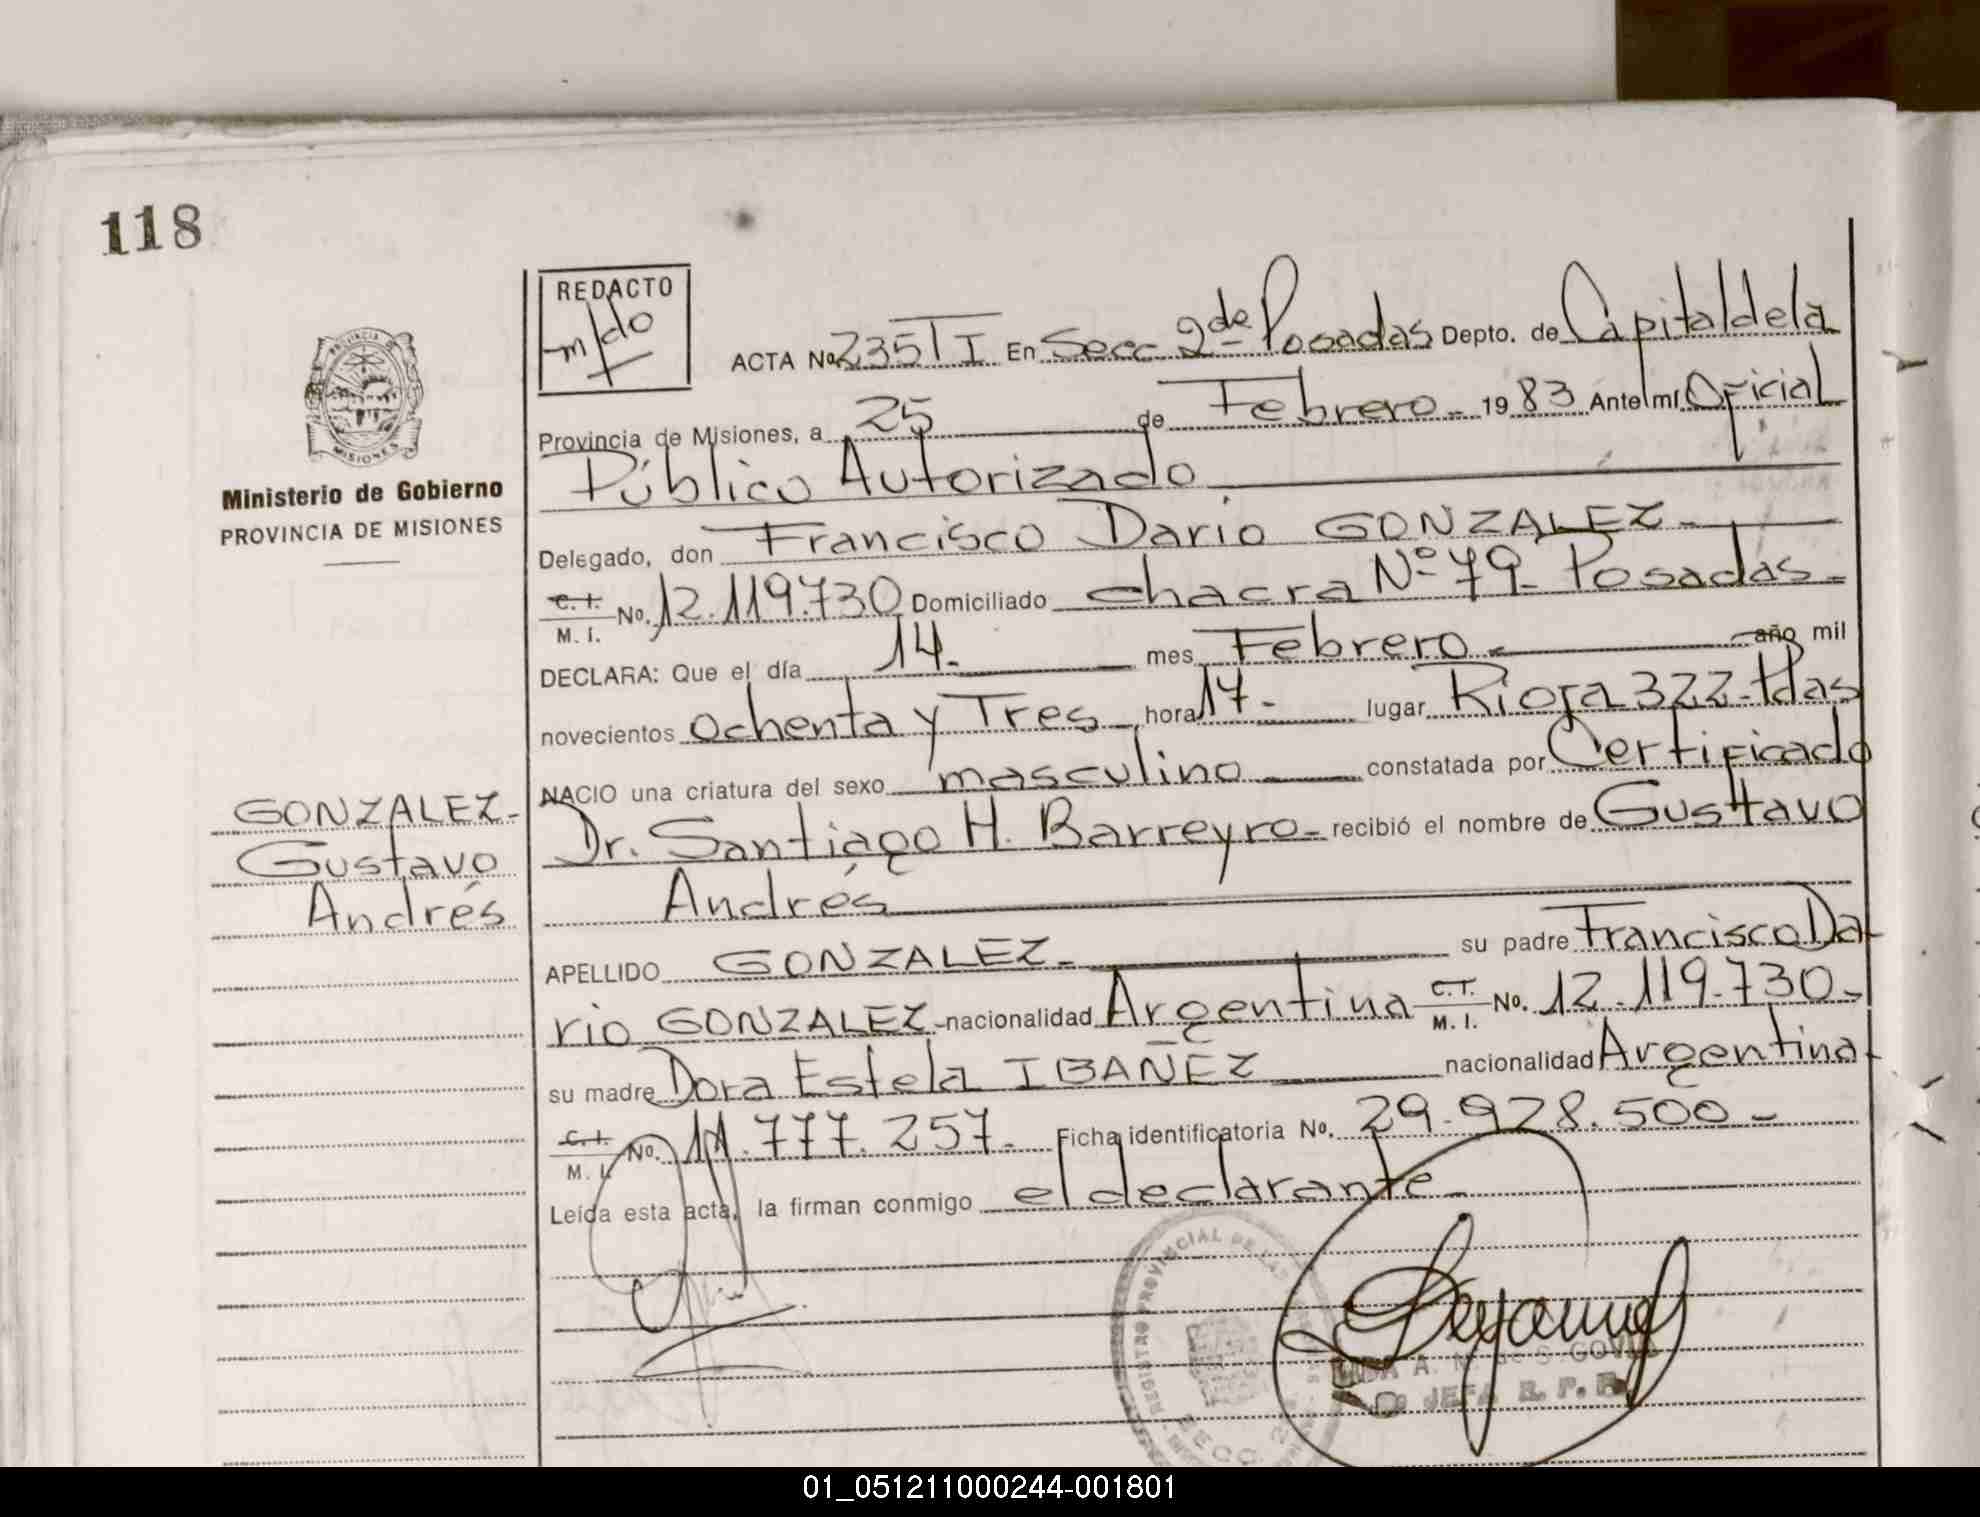 118
REDACTO
ACTA No 235 T I En Secc 2da de Posadas Depto. de Capital de la
Provincia de Misiones, a 25 de Febrero 1983 Ante mí Oficial
Público Autorizado
PROVINCIA DE
MISIONES
Ministerio de Gobierno
PROVINCIA DE MISIONES
Delegado, don Francisco Dario GONZALEZ
C.I. M.I. No. 12.119.730 Domiciliado chacra Nº 79 Posadas
DECLARA: Que el día 14 mes Febrero año mil
novecientos ochenta y Tres hora 17 lugar Rioja 322 Pdas
NACIO una criatura del sexo masculino constatada por Certificado
Dr. Santiago H. Barreyro recibió el nombre de Gustavo
Andrés
GONZALEZ
Gustavo
Andrés
APELLIDO GONZALEZ su padre Francisco Da-
rio GONZALEZ nacionalidad Argentina C.I. M.I. No. 12.119.730
su madre Dora Estela IBAÑEZ nacionalidad Argentina
C.I. M.I. No. 11.777.257 Ficha identificatoria No. 29.928.500
Leída esta acta, la firman conmigo el declarante
REGISTRO PROVINCIAL DE LAS
JEFA R. P. P.
01_051211000244-001801